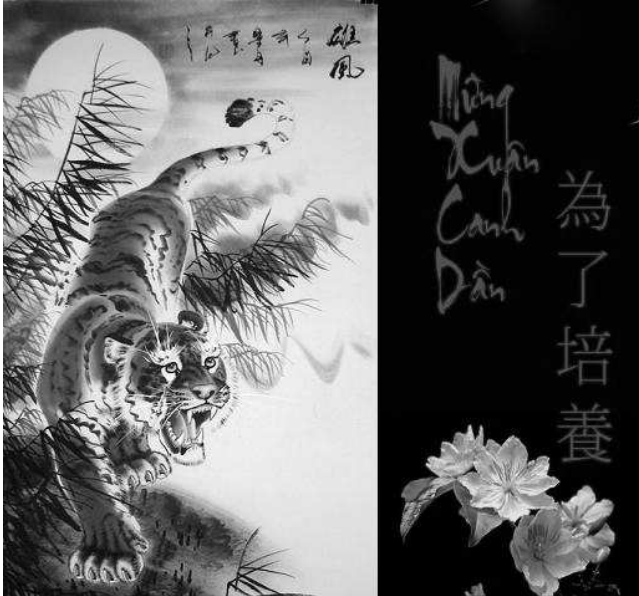 雄風
Mừng
Xuân
Canh
Dần
為了培養